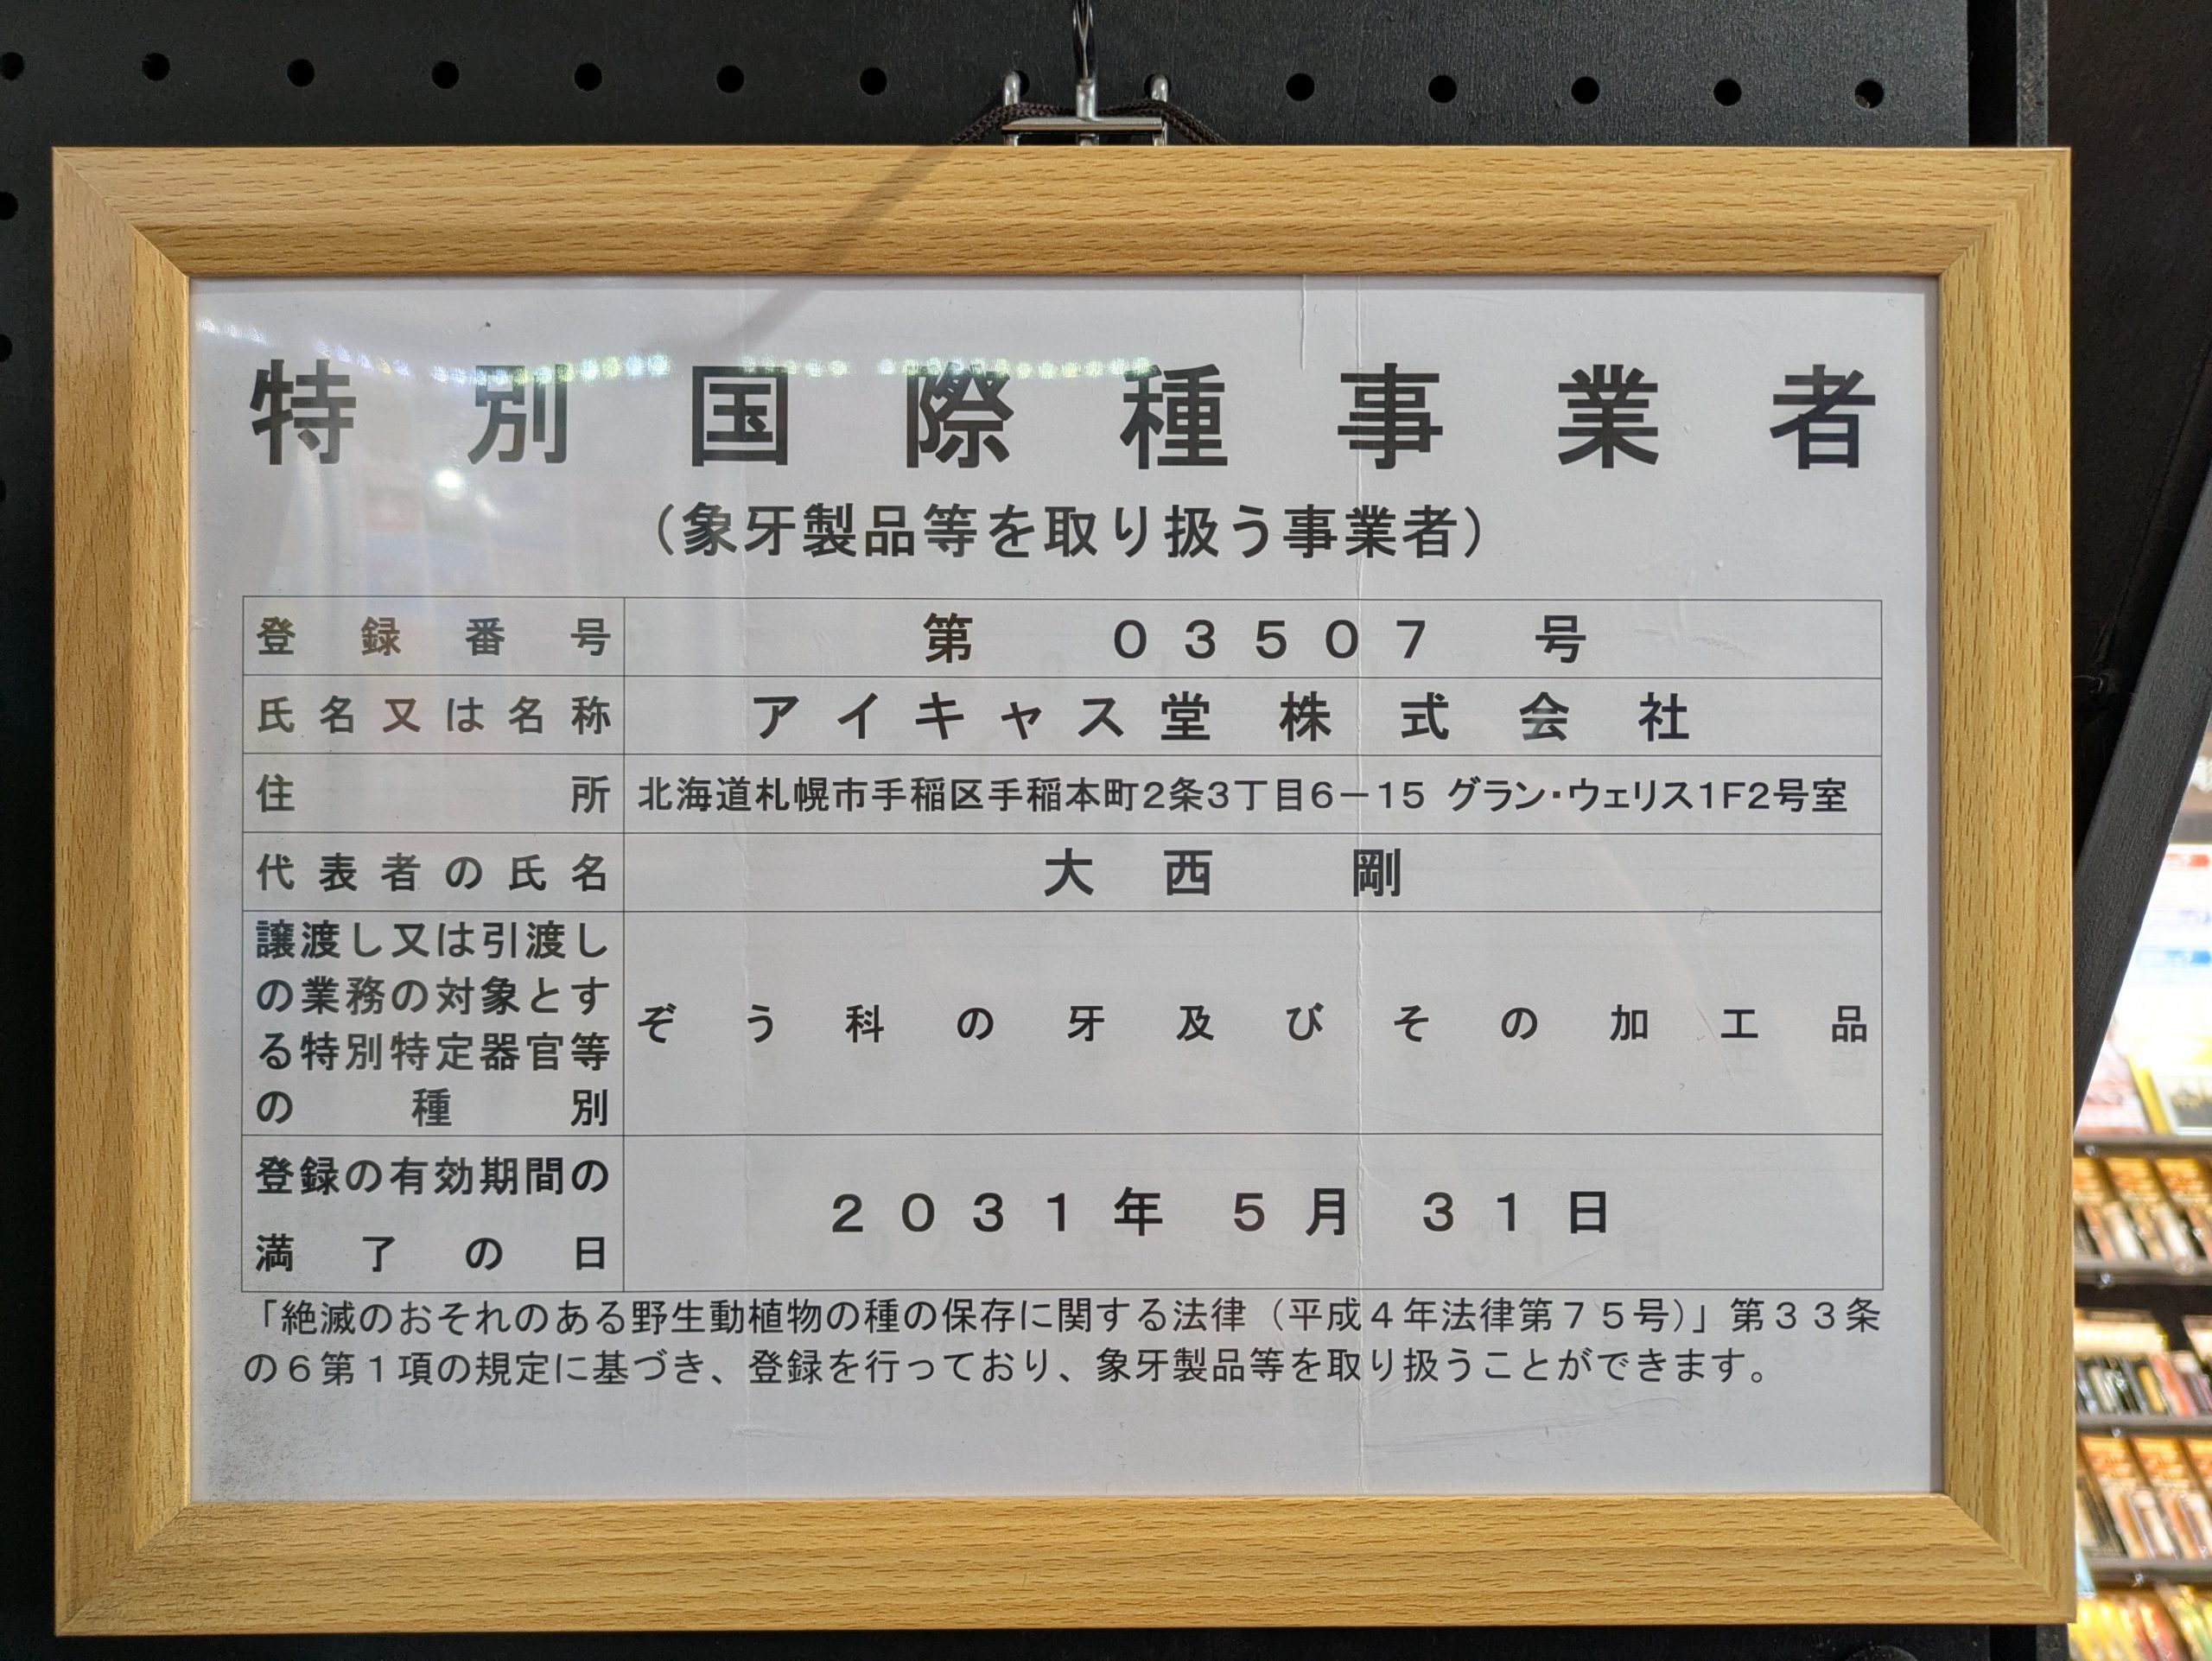 特別国際種事業者
（象牙製品等を取り扱う事業者）
登録番号 第 ０３５０７ 号
氏名又は名称 アイキャス堂 株式会社
住所 北海道札幌市手稲区手稲本町2条3丁目6－15 グラン・ウェリス1F2号室
代表者の氏名 大西 剛
譲渡し又は引渡し
の業務の対象とす
る特別特定器官等
の種別
ぞう科の牙及びその加工品
登録の有効期間の
満了の日
２０３１年 ５月 ３１日
「絶滅のおそれのある野生動植物の種の保存に関する法律（平成４年法律第７５号）」第３３条
の６第１項の規定に基づき、登録を行っており、象牙製品等を取り扱うことができます。